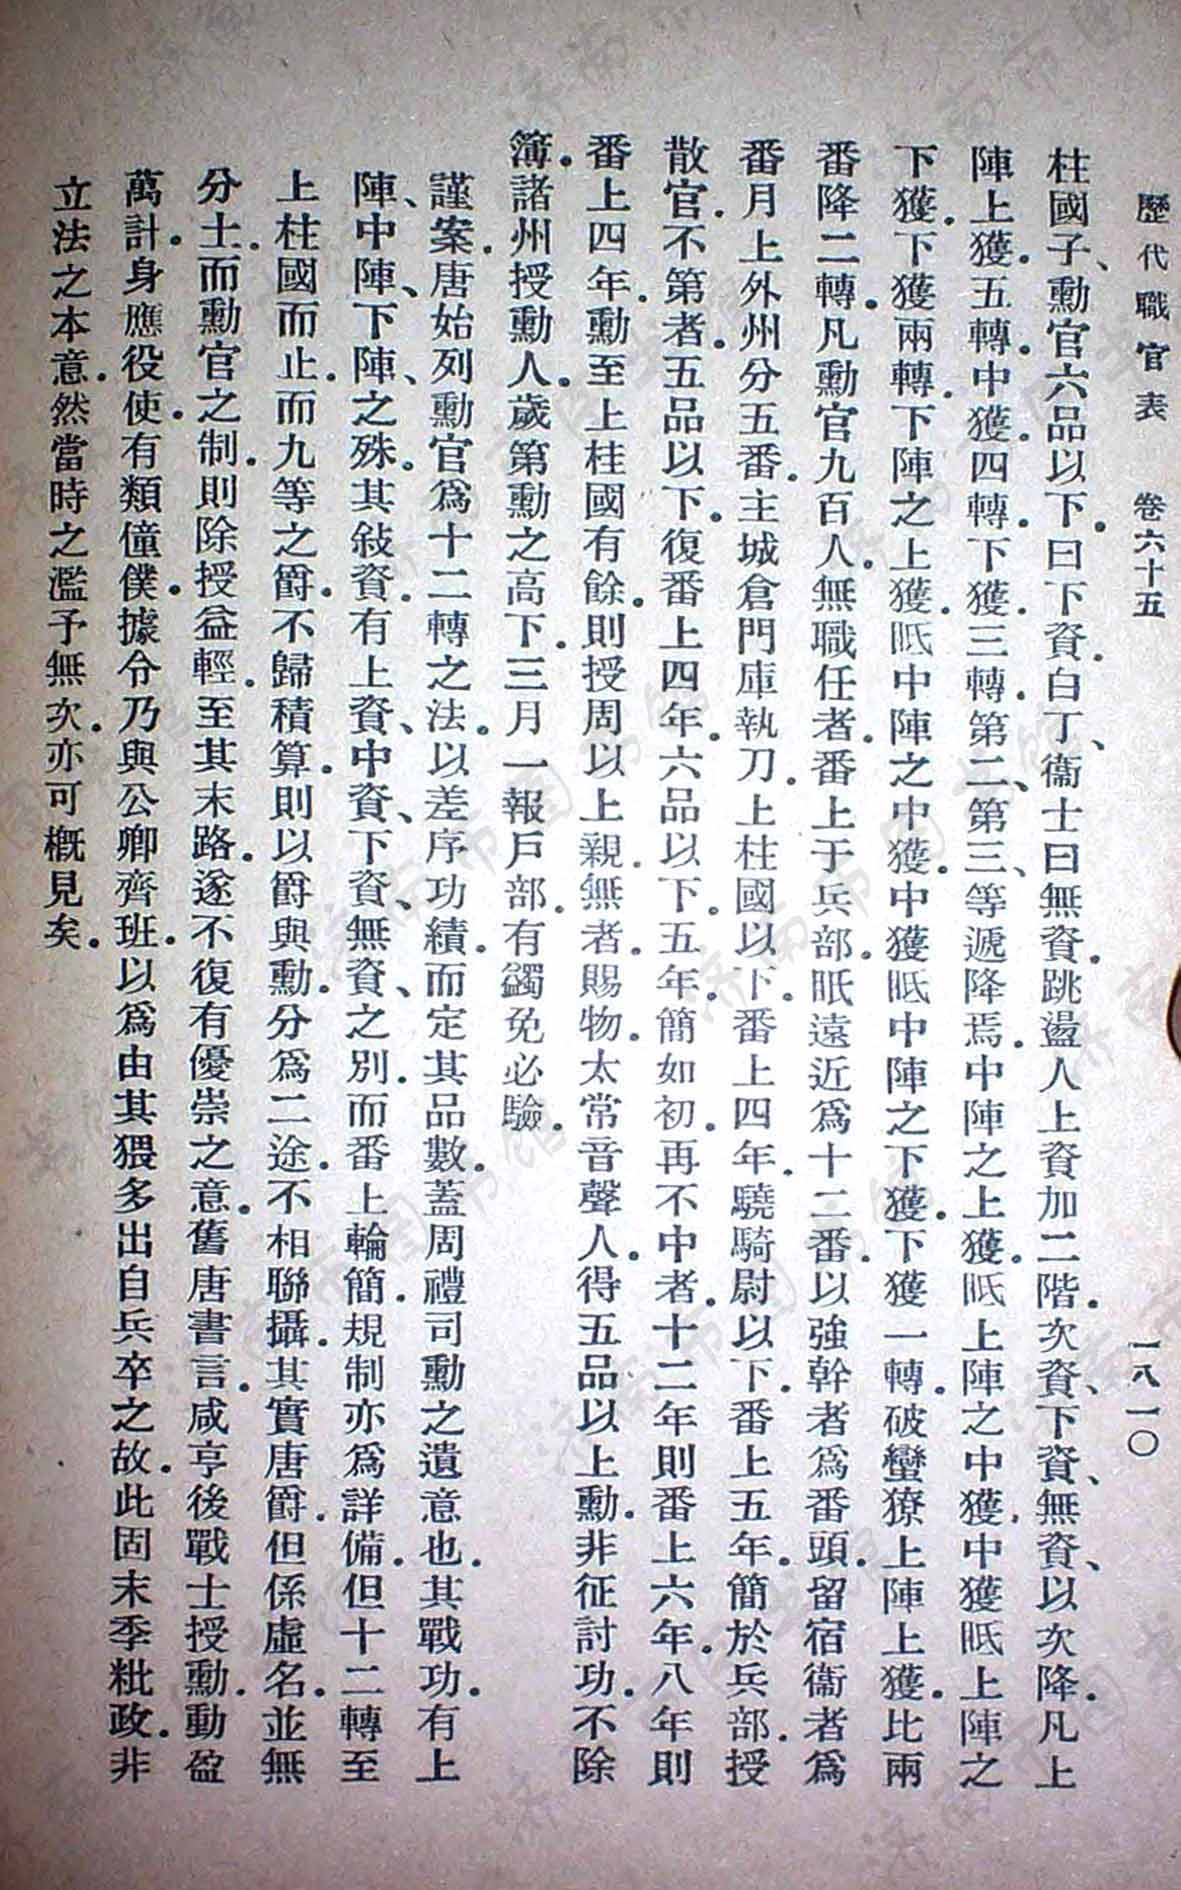 歷代職官表　卷六十五　一八一〇
柱國子、勳官六品以下。曰下資。白丁、衞士曰無資。跳盪人上資加二階。次資、下資、無資、以次降。凡上
陣上獲。五轉。中獲。四轉。下獲。三轉。第二、第三、等遞降焉。中陣之上獲。眂上陣之中獲。中獲眂上陣之
下獲。下獲兩轉。下陣之上獲。眂中陣之中獲。中獲眂中陣之下獲。下獲一轉。破蠻獠上陣上獲。比兩
番降二轉。凡勳官九百人。無職任者。番上于兵部。眂遠近爲十二番。以強幹者爲番頭。留宿衞者爲
番月上外州分五番。主城倉門庫執刀。上柱國以下。番上四年。驍騎尉以下。番上五年。簡於兵部。授
散官。不第者。五品以下。復番上四年。六品以下。五年。簡如初。再不中者。十二年則番上六年。八年則
番上四年。勳至上桂國有餘。則授周以上親。無者。賜物。太常音聲人。得五品以上勳。非征討功。不除
簿。諸州授勳人。歲第勳之高下。三月一報戶部。有蠲免必驗。
謹案。唐始列勳官爲十二轉之法。以差序功績。而定其品數。蓋周禮司勳之遺意也。其戰功。有上
陣、中陣、下陣、之殊。其敍資。有上資、中資、下資、無資、之別。而番上輪簡。規制亦爲詳備。但十二轉至
上柱國而止。而九等之爵。不歸積算。則以爵與勳。分爲二途。不相聯攝。其實唐爵。但係虛名。並無
分土。而勳官之制。則除授益輕。至其末路。遂不復有優崇之意。舊唐書言。咸亨後戰士授勳。動盈
萬計。身應役使。有類僮僕。據令乃與公卿齊班。以爲由其猥多出自兵卒之故。此固末季粃政。非
立法之本意。然當時之濫予無次。亦可槪見矣。